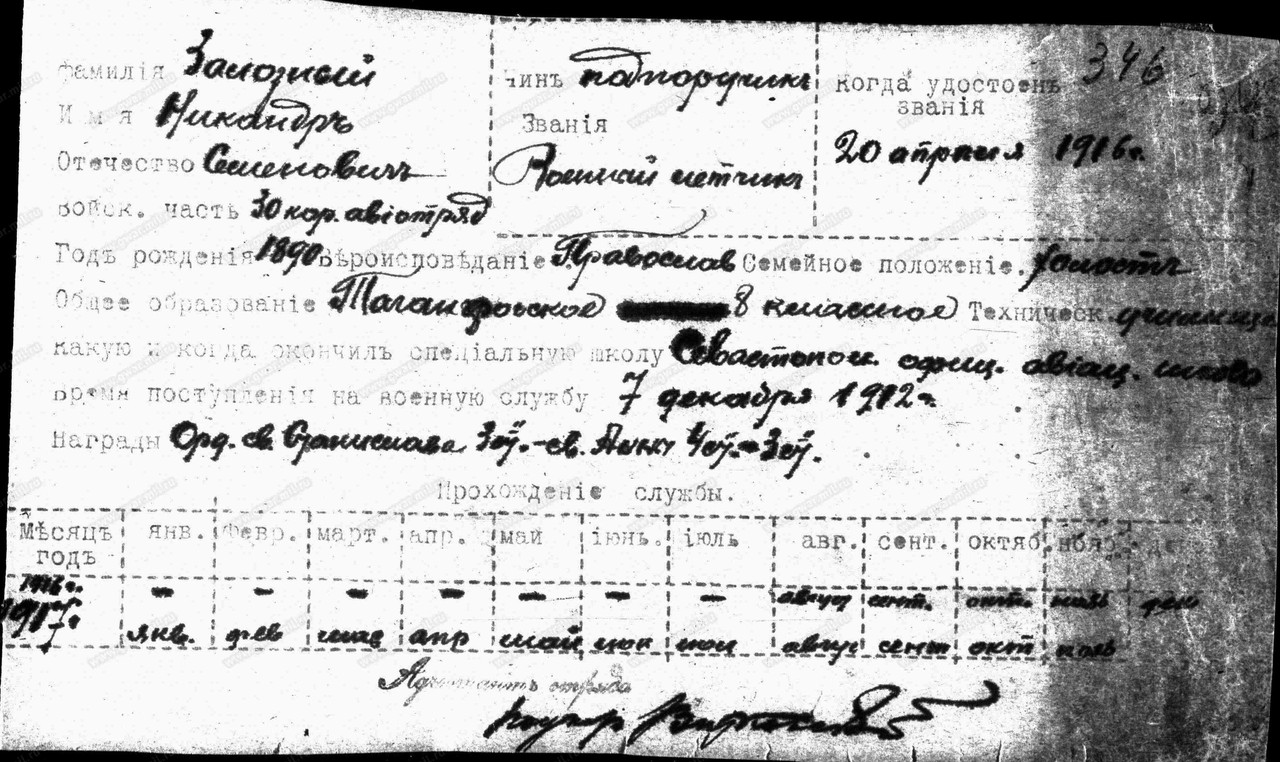 346
Фамилія Залозный
Имя Никандръ
Отечество Семеновичъ
Войск. часть 30 кор. авіотряд
Чинъ подпоручикъ
Званія
Военный летчикъ
Когда удостоенъ
званія
20 апреля 1916 г.
Годъ рожденія 1890 Вѣроисповѣданіе Православ Семейное положеніе. холостъ
Общее образованіе Таганрогское 8 классное Техническ. училище
Какую и когда окончилъ спеціальную школу Севастопол. офиц. авіац. школа
Время поступленія на военную службу 7 декабря 1912 г.
Награды Орд. св. Станислава 3 ст. - св. Анны 4 ст. и 3 ст.
Прохожденіе службы.
Мѣсяцъ янв. Февр. март. апр. май іюнь. іюль авг. сент. октяб. нбяр. де
годъ
1916 г. - - - - - - - август сент. окт. нояб дек
1917 г. янв. фев мар апр май июн июл август сент окт нояб
Адъютантъ отряда